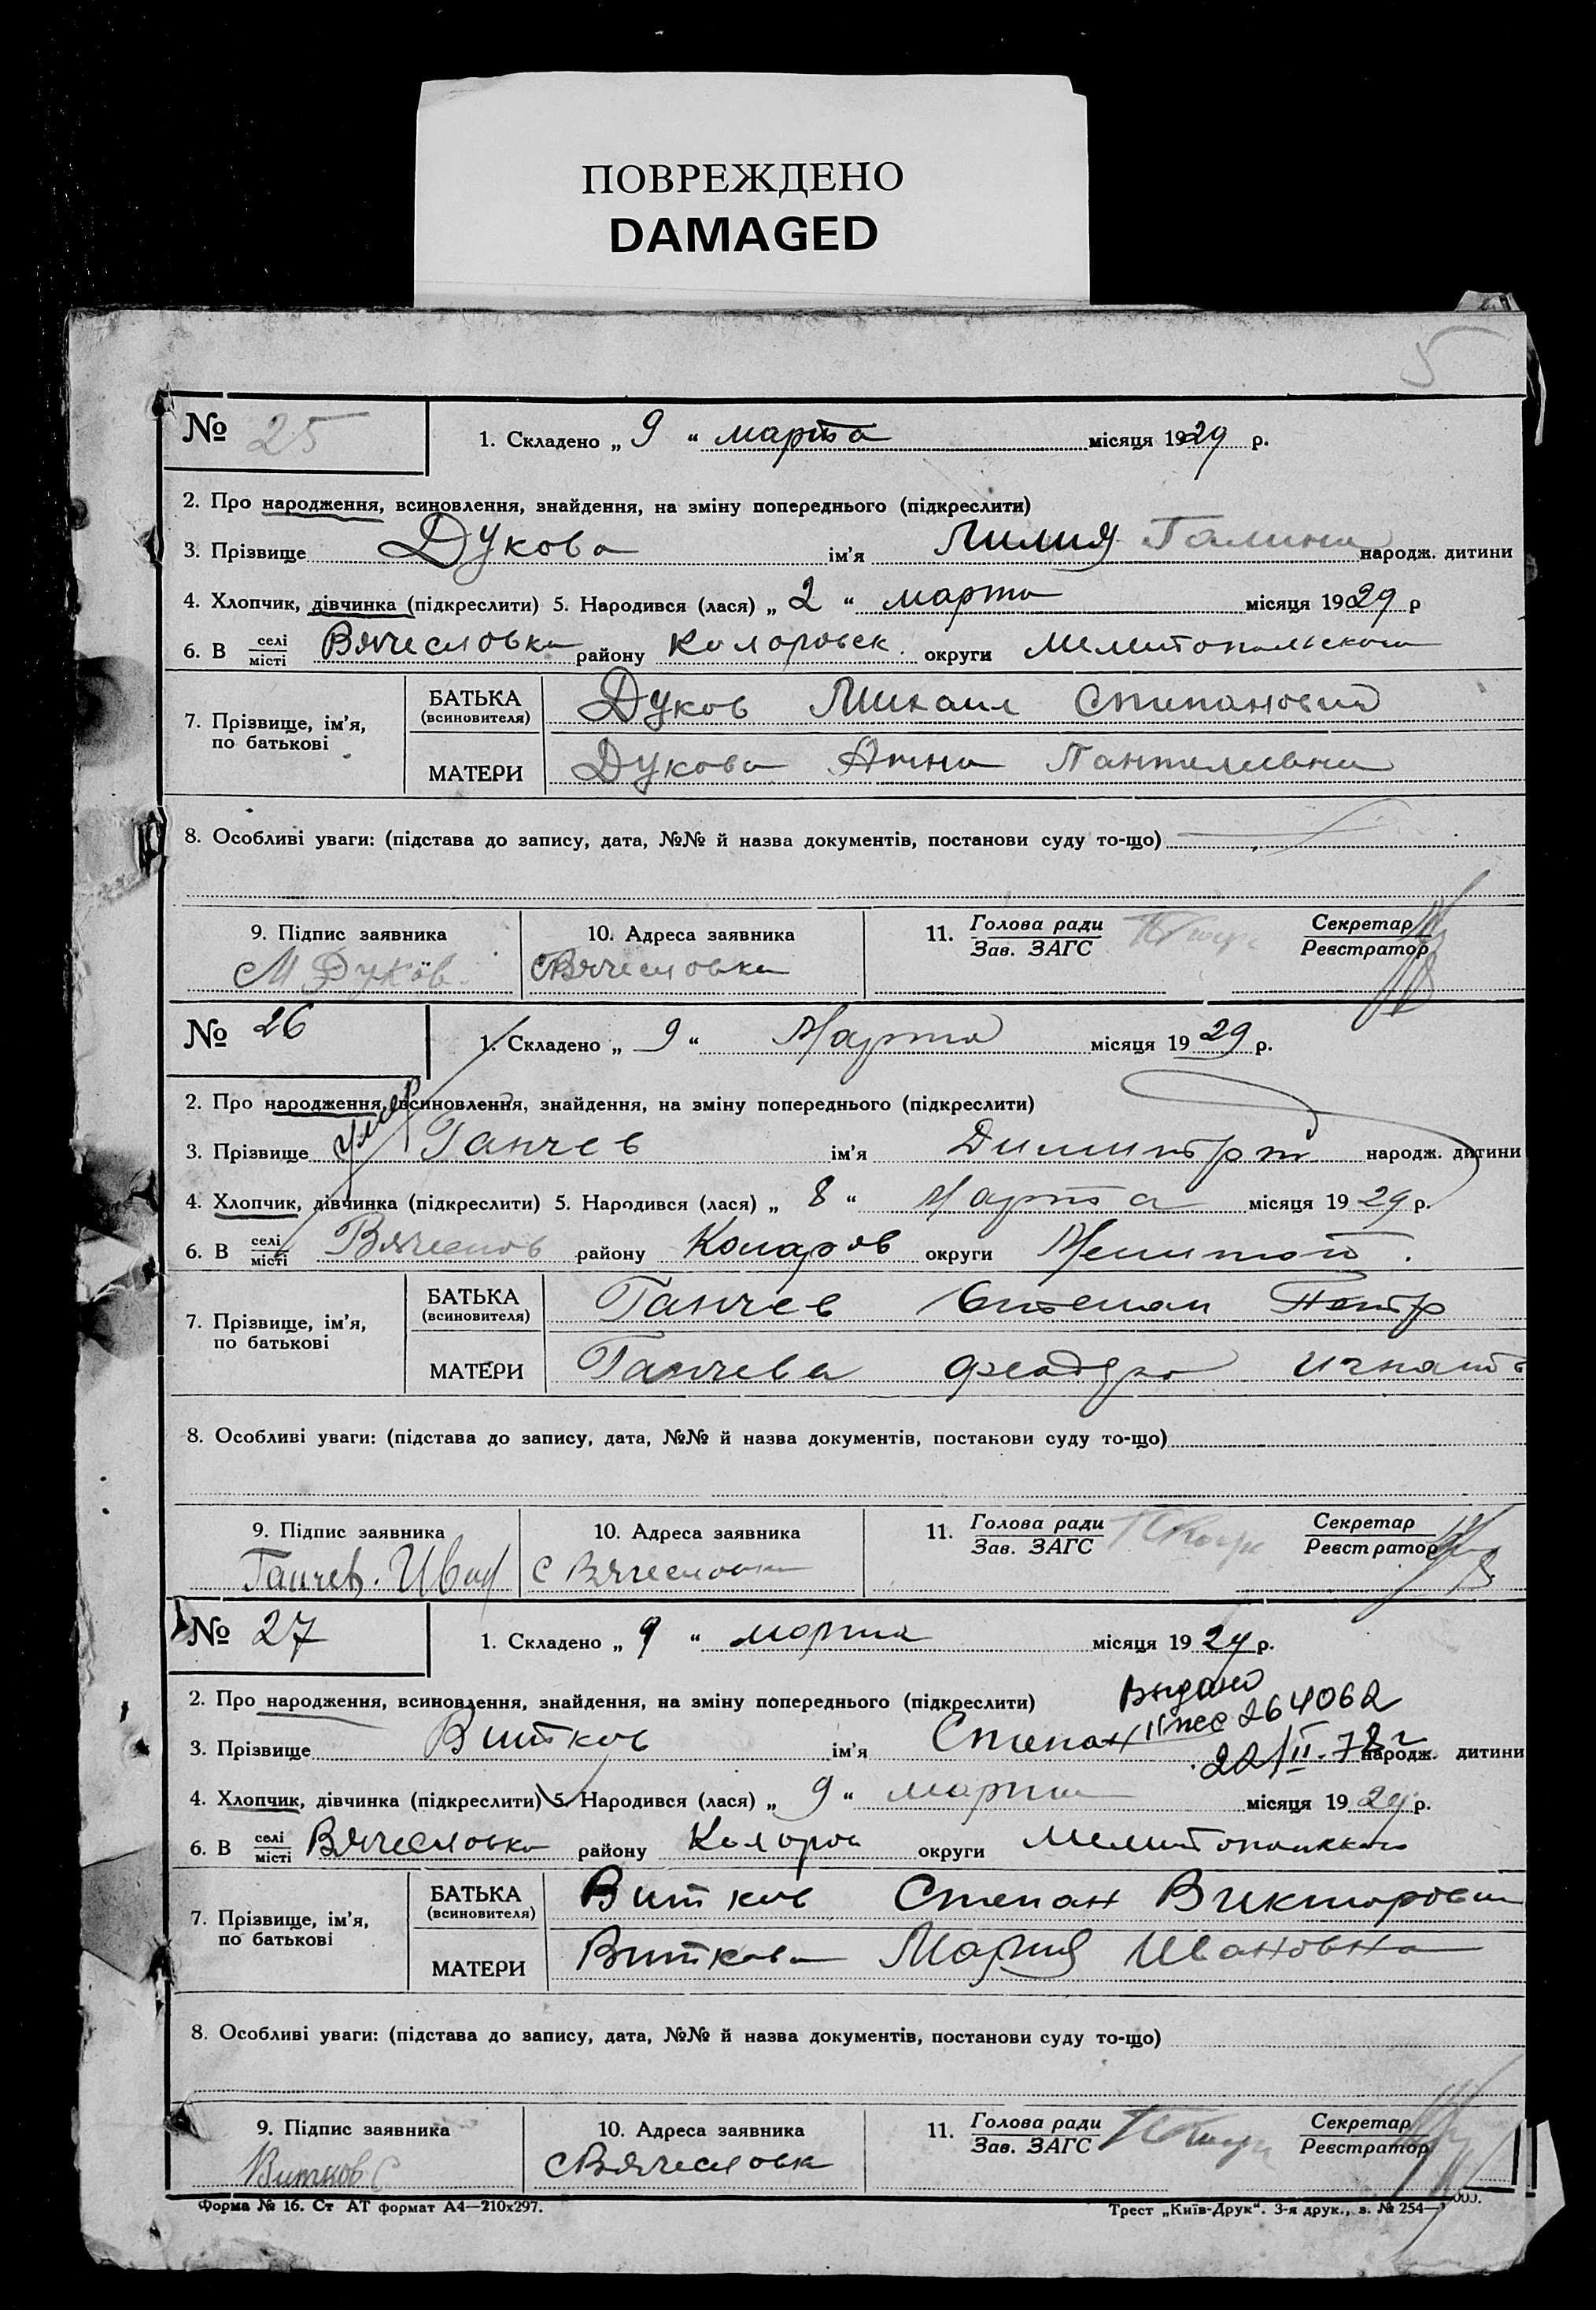 ПОВРЕЖДЕНО
DAMAGED
5
№ 25
1. Складено „ 9 “ марта місяця 1929 р.
2. Про народження, всиновлення, знайдення, на зміну попереднього (підкреслити)
3. Прізвище Дукова ім’я Лилия Галина народж. дитини
4. Хлопчик, дівчинка (підкреслити) 5. Народився (лася) „ 2 “ марта місяця 1929 р
6. В селі місті Вячесловка району Коларовск. округи Мелитопольского
7. Прізвище, ім’я, по батькові
БАТЬКА (всиновителя) Дуков Михаил Степанович
МАТЕРИ Дукова Анна Пантелеевна
8. Особливі уваги: (підстава до запису, дата, №№ й назва документів, постанови суду то-що)
9. Підпис заявника 10. Адреса заявника 11. Голова ради Зав. ЗАГС Секретар Реєстратор
М Дуков. с Вячесловка
№ 26
1. Складено „ 9 “ Марта місяця 1929 р.
2. Про народження, всиновлення, знайдення, на зміну попереднього (підкреслити)
умер
3. Прізвище Ганчев ім’я Димитрий народж. дитини
4. Хлопчик, дівчинка (підкреслити) 5. Народився (лася) „ 8 “ Марта місяця 1929 р.
6. В селі місті Вячеслов району Коларов округи Мелитоп.
7. Прізвище, ім’я, по батькові
БАТЬКА (всиновителя) Ганчев Степан Петр
МАТЕРИ Ганчева Феодора Игнатв
8. Особливі уваги: (підстава до запису, дата, №№ й назва документів, постанови суду то-що)
9. Підпис заявника 10. Адреса заявника 11. Голова ради Зав. ЗАГС Секретар Реєстратор
Ганчев. с Вячесловка
№ 27
1. Складено „ 9 “ марта місяця 1929 р.
2. Про народження, всиновлення, знайдення, на зміну попереднього (підкреслити)
Выдано
264062
3. Прізвище Витков ім’я Степан народж. дитини
22/II-78г
4. Хлопчик, дівчинка (підкреслити) 5. Народився (лася) „ 9 “ марта місяця 1929 р.
6. В селі місті Вячесловка району Коларов округи Мелитопольского
7. Прізвище, ім’я, по батькові
БАТЬКА (всиновителя) Витков Степан Викторович
МАТЕРИ Виткова Мария Ивановна
8. Особливі уваги: (підстава до запису, дата, №№ й назва документів, постанови суду то-що)
9. Підпис заявника 10. Адреса заявника 11. Голова ради Зав. ЗАГС Секретар Реєстратор
Витков С с Вячесловк
Форма № 16. Ст АТ формат А4—210х297.
Трест „Київ-Друк“. 3-я друк., з. № 254—